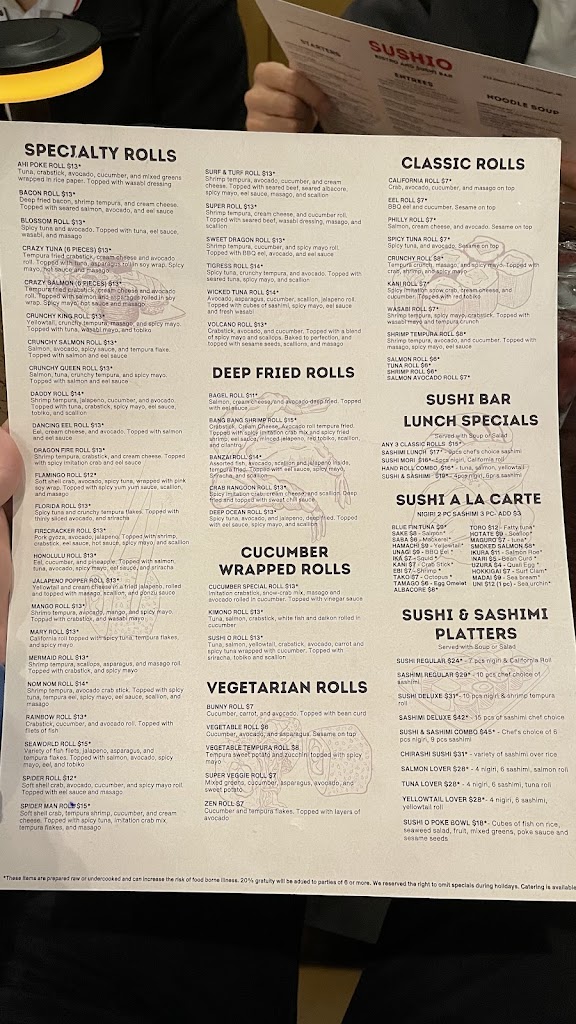 SUSHIO
BISTRO AND SUSHI BAR
STARTERS
ENTREES
NOODLE SOUP
SPECIALTY ROLLS
AHI POKE ROLL $13*
Tuna, crabstick, avocado, cucumber, and mixed greens
wrapped in rice paper. Topped with wasabi dressing
BACON ROLL $13*
Deep fried bacon, shrimp tempura, and cream cheese.
Topped with seared salmon, avocado, and eel sauce
BLOSSOM ROLL $13*
Spicy tuna and avocado. Topped with tuna, eel sauce,
wasabi, and masago
CRAZY TUNA (6 PIECES) $13*
Tempura fried crabstick, cream cheese and avocado
roll. Topped with tuna, asparagus rolled in soy wrap. Spicy
mayo, hot sauce and masago
CRAZY SALMON (6 PIECES) $13*
Tempura fried crabstick, cream cheese and avocado
roll. Topped with salmon and asparagus rolled in soy
wrap. Spicy mayo, hot sauce and masago
CRUNCHY KING ROLL $13*
Yellowtail, crunchy tempura, masago, and spicy mayo.
Topped with tuna, wasabi mayo, and tobiko
CRUNCHY SALMON ROLL $13*
Salmon, avocado, spicy sauce, and tempura flake.
Topped with salmon and eel sauce
CRUNCHY QUEEN ROLL $13*
Salmon, tuna, crunchy tempura, and spicy mayo.
Topped with salmon and eel sauce
DADDY ROLL $14*
Shrimp tempura, jalapeno, cucumber, and avocado.
Topped with tuna, crabstick, spicy mayo, eel sauce,
tobiko, and scallion
DANCING EEL ROLL $13*
Eel, cream cheese, and avocado. Topped with salmon
and eel sauce
DRAGON FIRE ROLL $13*
Shrimp tempura, crabstick, and cream cheese. Topped
with spicy imitation crab and eel sauce
FLAMINGO ROLL $12*
Soft shell crab, avocado, spicy tuna, wrapped with pink
soy wrap. Topped with spicy yum yum sauce, scallion,
and masago
FLORIDA ROLL $13*
Spicy tuna and crunchy tempura flakes. Topped with
thinly sliced avocado, and sriracha
FIRECRACKER ROLL $13*
Pork gyoza, avocado, jalapeno. Topped with shrimp,
crabstick, eel sauce, hot sauce, spicy mayo, and scallion
HONOLULU ROLL $13*
Eel, cucumber, and pineapple. Topped with salmon,
tuna, avocado, spicy mayo, eel sauce, and sriracha
JALAPENO POPPER ROLL $13*
Yellowtail and cream cheese in a fried jalapeno, rolled
and topped with masago, scallion, and ponzu sauce
MANGO ROLL $13*
Shrimp tempura, avocado, mango, and spicy mayo.
Topped with crabstick, and wasabi mayo
MARY ROLL $13*
California roll topped with spicy tuna, tempura flakes,
and spicy mayo
MERMAID ROLL $13*
Shrimp tempura, scallops, asparagus, and masago roll.
Topped with crabstick, and spicy mayo
NOM NOM ROLL $14*
Shrimp tempura, avocado crab stick. Topped with spicy
tuna, tempura eel, spicy mayo, eel sauce, masago, and
scallion
RAINBOW ROLL $13*
Crabstick, cucumber, and avocado roll. Topped with
filets of fish
SEAWORLD ROLL $15*
Variety of fish filets, jalapeno, asparagus, and
tempura flakes. Topped with salmon, avocado, spicy
mayo, eel, and tobiko
SPIDER ROLL $12*
Soft shell crab, avocado, cucumber, and spicy mayo roll.
Topped with eel sauce and masago
SPIDER MAN ROLL $15*
Soft shell crab, tempura shrimp, cucumber, and cream
cheese. Topped with spicy tuna, imitation crab mix,
tempura flakes, and masago
SURF & TURF ROLL $13*
Shrimp tempura, avocado, cucumber, and cream
cheese. Topped with seared beef, seared albacore,
spicy mayo, eel sauce, masago, and scallion
SUPER ROLL $13*
Shrimp tempura, cream cheese, and cucumber roll.
Topped with seared beef, wasabi dressing, masago, and
scallion
SWEET DRAGON ROLL $13*
Shrimp tempura, cucumber, and spicy mayo roll.
Topped with BBQ eel, avocado, and eel sauce
TIGRESS ROLL $14*
Spicy tuna, crunchy tempura, and avocado. Topped with
seared tuna, spicy mayo, and scallion
WICKED TUNA ROLL $14*
Avocado, asparagus, cucumber, scallion, jalapeno roll.
Topped with cubes of sashimi, spicy mayo, eel sauce
and fresh wasabi
VOLCANO ROLL $13*
Crabstick, avocado, and cucumber. Topped with a blend
of spicy mayo and scallops. Baked to perfection, and
topped with sesame seeds, scallions, and masago
DEEP FRIED ROLLS
BAGEL ROLL $11*
Salmon, cream cheese, and avocado deep fried. Topped
with eel sauce
BANG BANG SHRIMP ROLL $15*
Crabstick, Cream Cheese, Avocado roll tempura fried.
Topped with spicy imitation crab mix and spicy fried
shrimp, eel sauce, minced jalapeno, red tobiko, scallion,
and cilantro
BANZAI ROLL $14*
Assorted fish, avocado, scallion and jalapeno inside,
tempura fried. Topped with eel sauce, spicy mayo,
Sriracha, and scallion
CRAB RANGOON ROLL $13*
Spicy imitation crab, cream cheese, and scallion. Deep
fried and topped with sweet chili sauce
DEEP OCEAN ROLL $13*
Spicy tuna, avocado, and jalapeno, deep fried. Topped
with eel sauce, spicy mayo, and scallion
CUCUMBER
WRAPPED ROLLS
CUCUMBER SPECIAL ROLL $13*
Imitation crabstick, snow-crab mix, masago and
avocado rolled in cucumber. Topped with vinegar sauce
KIMONO ROLL $13*
Tuna, salmon, crabstick, white fish and daikon rolled in
cucumber
SUSHI O ROLL $13*
Tuna, salmon, yellowtail, crabstick, avocado, carrot and
spicy tuna wrapped in cucumber. Topped with
sriracha, tobiko and scallion
VEGETARIAN ROLLS
BUNNY ROLL $7
Cucumber, carrot, and avocado. Topped with bean curd
VEGETABLE ROLL $6
Cucumber, avocado, and asparagus. Sesame on top
VEGETABLE TEMPURA ROLL $8
Tempura sweet potato and zucchini topped with spicy
mayo
SUPER VEGGIE ROLL $7
Mixed greens, cucumber, asparagus, avocado, and
sweet potato
ZEN ROLL $7
Cucumber and tempura flakes. Topped with layers of
avocado
CLASSIC ROLLS
CALIFORNIA ROLL $7*
Crab, avocado, cucumber, and masago on top
EEL ROLL $7*
BBQ eel and cucumber. Sesame on top
PHILLY ROLL $7*
Salmon, cream cheese, and avocado. Sesame on top
SPICY TUNA ROLL $7*
Spicy tuna, and avocado. Sesame on top
CRUNCHY ROLL $8*
Tempura crunch, masago, and spicy mayo. Topped with
crab, shrimp, and
KANI ROLL $7*
Spicy imitation snow crab, cream cheese, and
cucumber. Topped with red tobiko
WASABI ROLL $7*
Shrimp tempura, spicy mayo, crabstick. Topped with
wasabi mayo and tempura crunch
SHRIMP TEMPURA ROLL $8*
Shrimp tempura, avocado, and cucumber. Topped with
masago, spicy mayo, eel sauce
SALMON ROLL $6*
TUNA ROLL $6*
SHRIMP ROLL $6*
SALMON AVOCADO ROLL $7*
SUSHI BAR
LUNCH SPECIALS
Served with Soup or Salad
ANY 3 CLASSIC ROLLS $15*
SASHIMI LUNCH $17* - 9pcs chef's choice sashimi
SUSHI MORI $16* - 5pcs nigiri, California roll
HAND ROLL COMBO $16* - tuna, salmon, yellowtail
SUSHI & SASHIMI $19* - 4pcs nigiri, 6pcs sashimi
SUSHI A LA CARTE
NIGIRI 2 PC SASHIMI 3 PC- ADD $3
BLUE FIN TUNA $9*
SAKE $8 - Salmon*
SABA $6 - Mackerel*
HAMACHI $9 - Yellowtail*
UNAGI $9 - BBQ Eel *
IKA $7 - Squid *
KANI $7 - Crab Stick*
EBI $7 - Shrimp
TAKO $7 - Octopus *
TAMAGO $6 - Egg Omelet
ALBACORE $8*
TORO $12 - Fatty tuna*
HOTATE $9 - Scallop*
MAGURO $7 - tuna*
SMOKED SALMON $8*
IKURA $11 - Salmon Roe*
INARI $5 - Bean Curd *
UZURA $4 - Quail Egg *
HOKKIGAI $7 - Surf Clam*
MADAI $9 - Sea bream*
UNI $12 (1 pc) - Sea urchin*
SUSHI & SASHIMI
PLATTERS
Served with Soup or Salad
SUSHI REGULAR $24* - 7 pcs nigiri & California Roll
SASHIMI REGULAR $29* - 10 pcs chef choice of
sashimi
SUSHI DELUXE $31* - 10 pcs nigiri & shrimp tempura
roll
SASHIMI DELUXE $42* - 15 pcs of sashimi chef choice
SUSHI & SASHIMI COMBO $45* - Chef's choice of 6
pcs nigiri, 9 pcs sashimi
CHIRASHI SUSHI $31* - variety of sashimi over rice
SALMON LOVER $28* - 4 nigiri, 6 sashimi, salmon roll
TUNA LOVER $28* - 4 nigiri, 6 sashimi, tuna roll
YELLOWTAIL LOVER $28* - 4 nigiri, 6 sashimi,
yellowtail roll
SUSHI O POKE BOWL $18* - Cubes of fish on rice,
seaweed salad, fruit, mixed greens, poke sauce and
sesame seeds
*These items are prepared raw or undercooked and can increase the risk of food borne illness. 20% gratuity will be added to parties of 6 or more. We reserved the right to omit specials during holidays. Catering is available